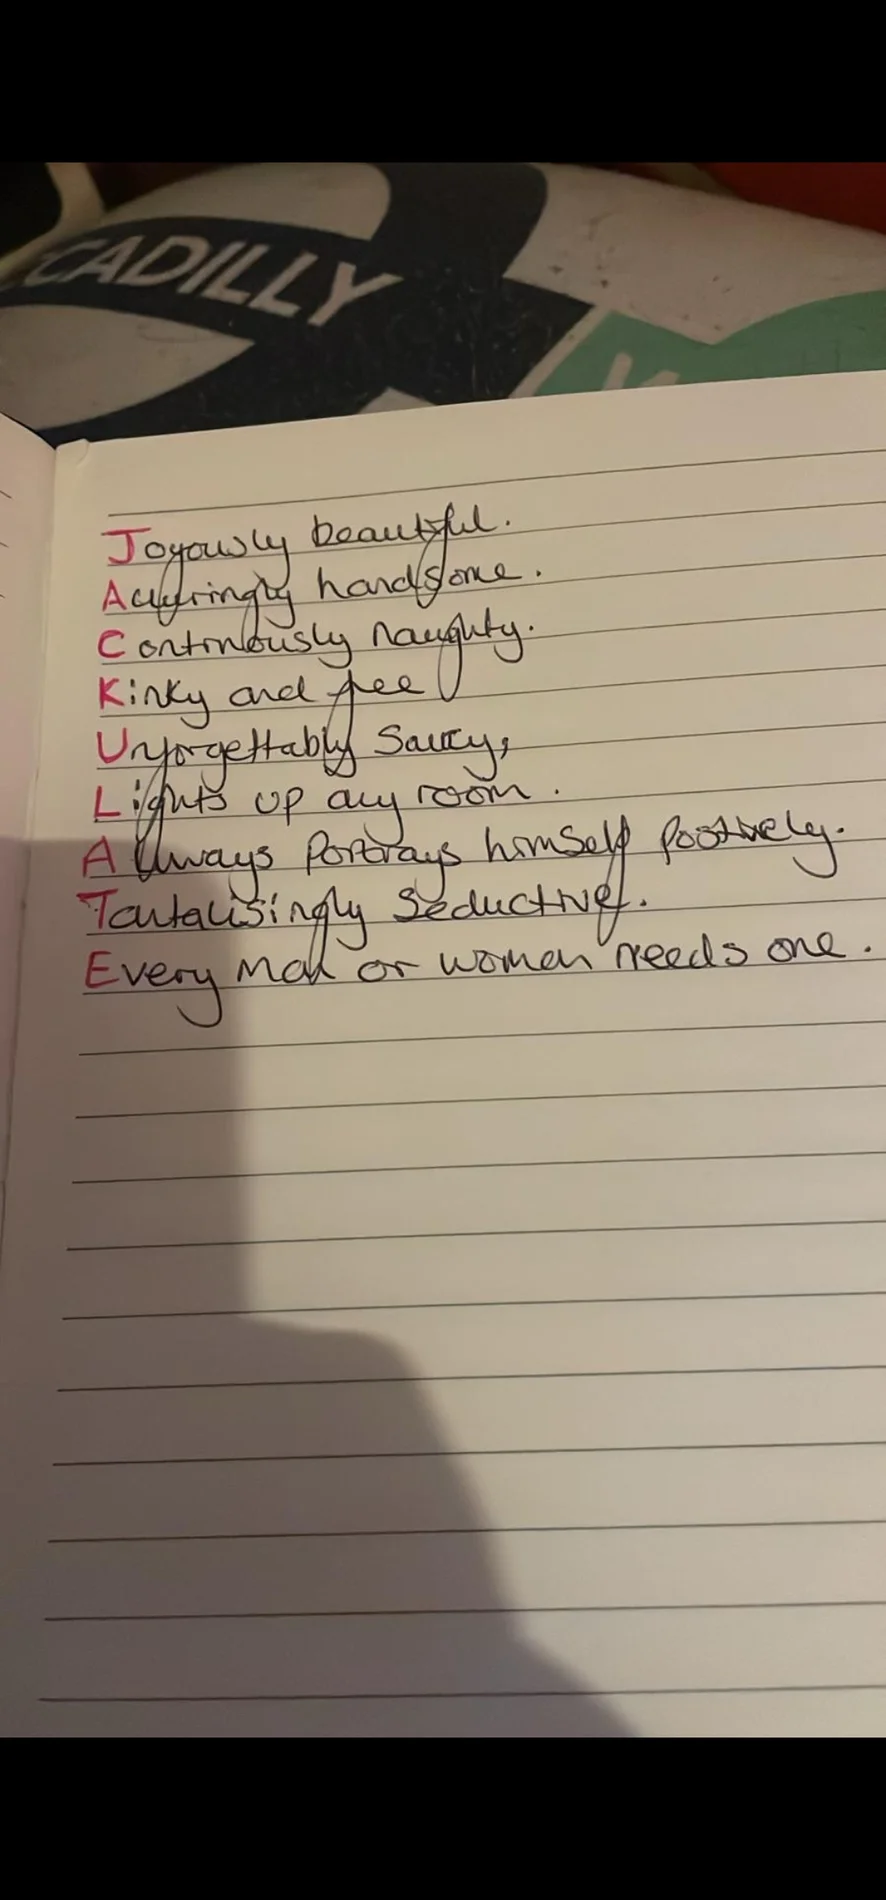 CADILLY
Joyously beautiful.
Alluringly handsome.
Continously naughty.
Kinky and free
Unforgettably Saucy,
Lights up any room.
Always Portrays himself Positively.
Tantalisingly Seductive.
Every man or women needs one.